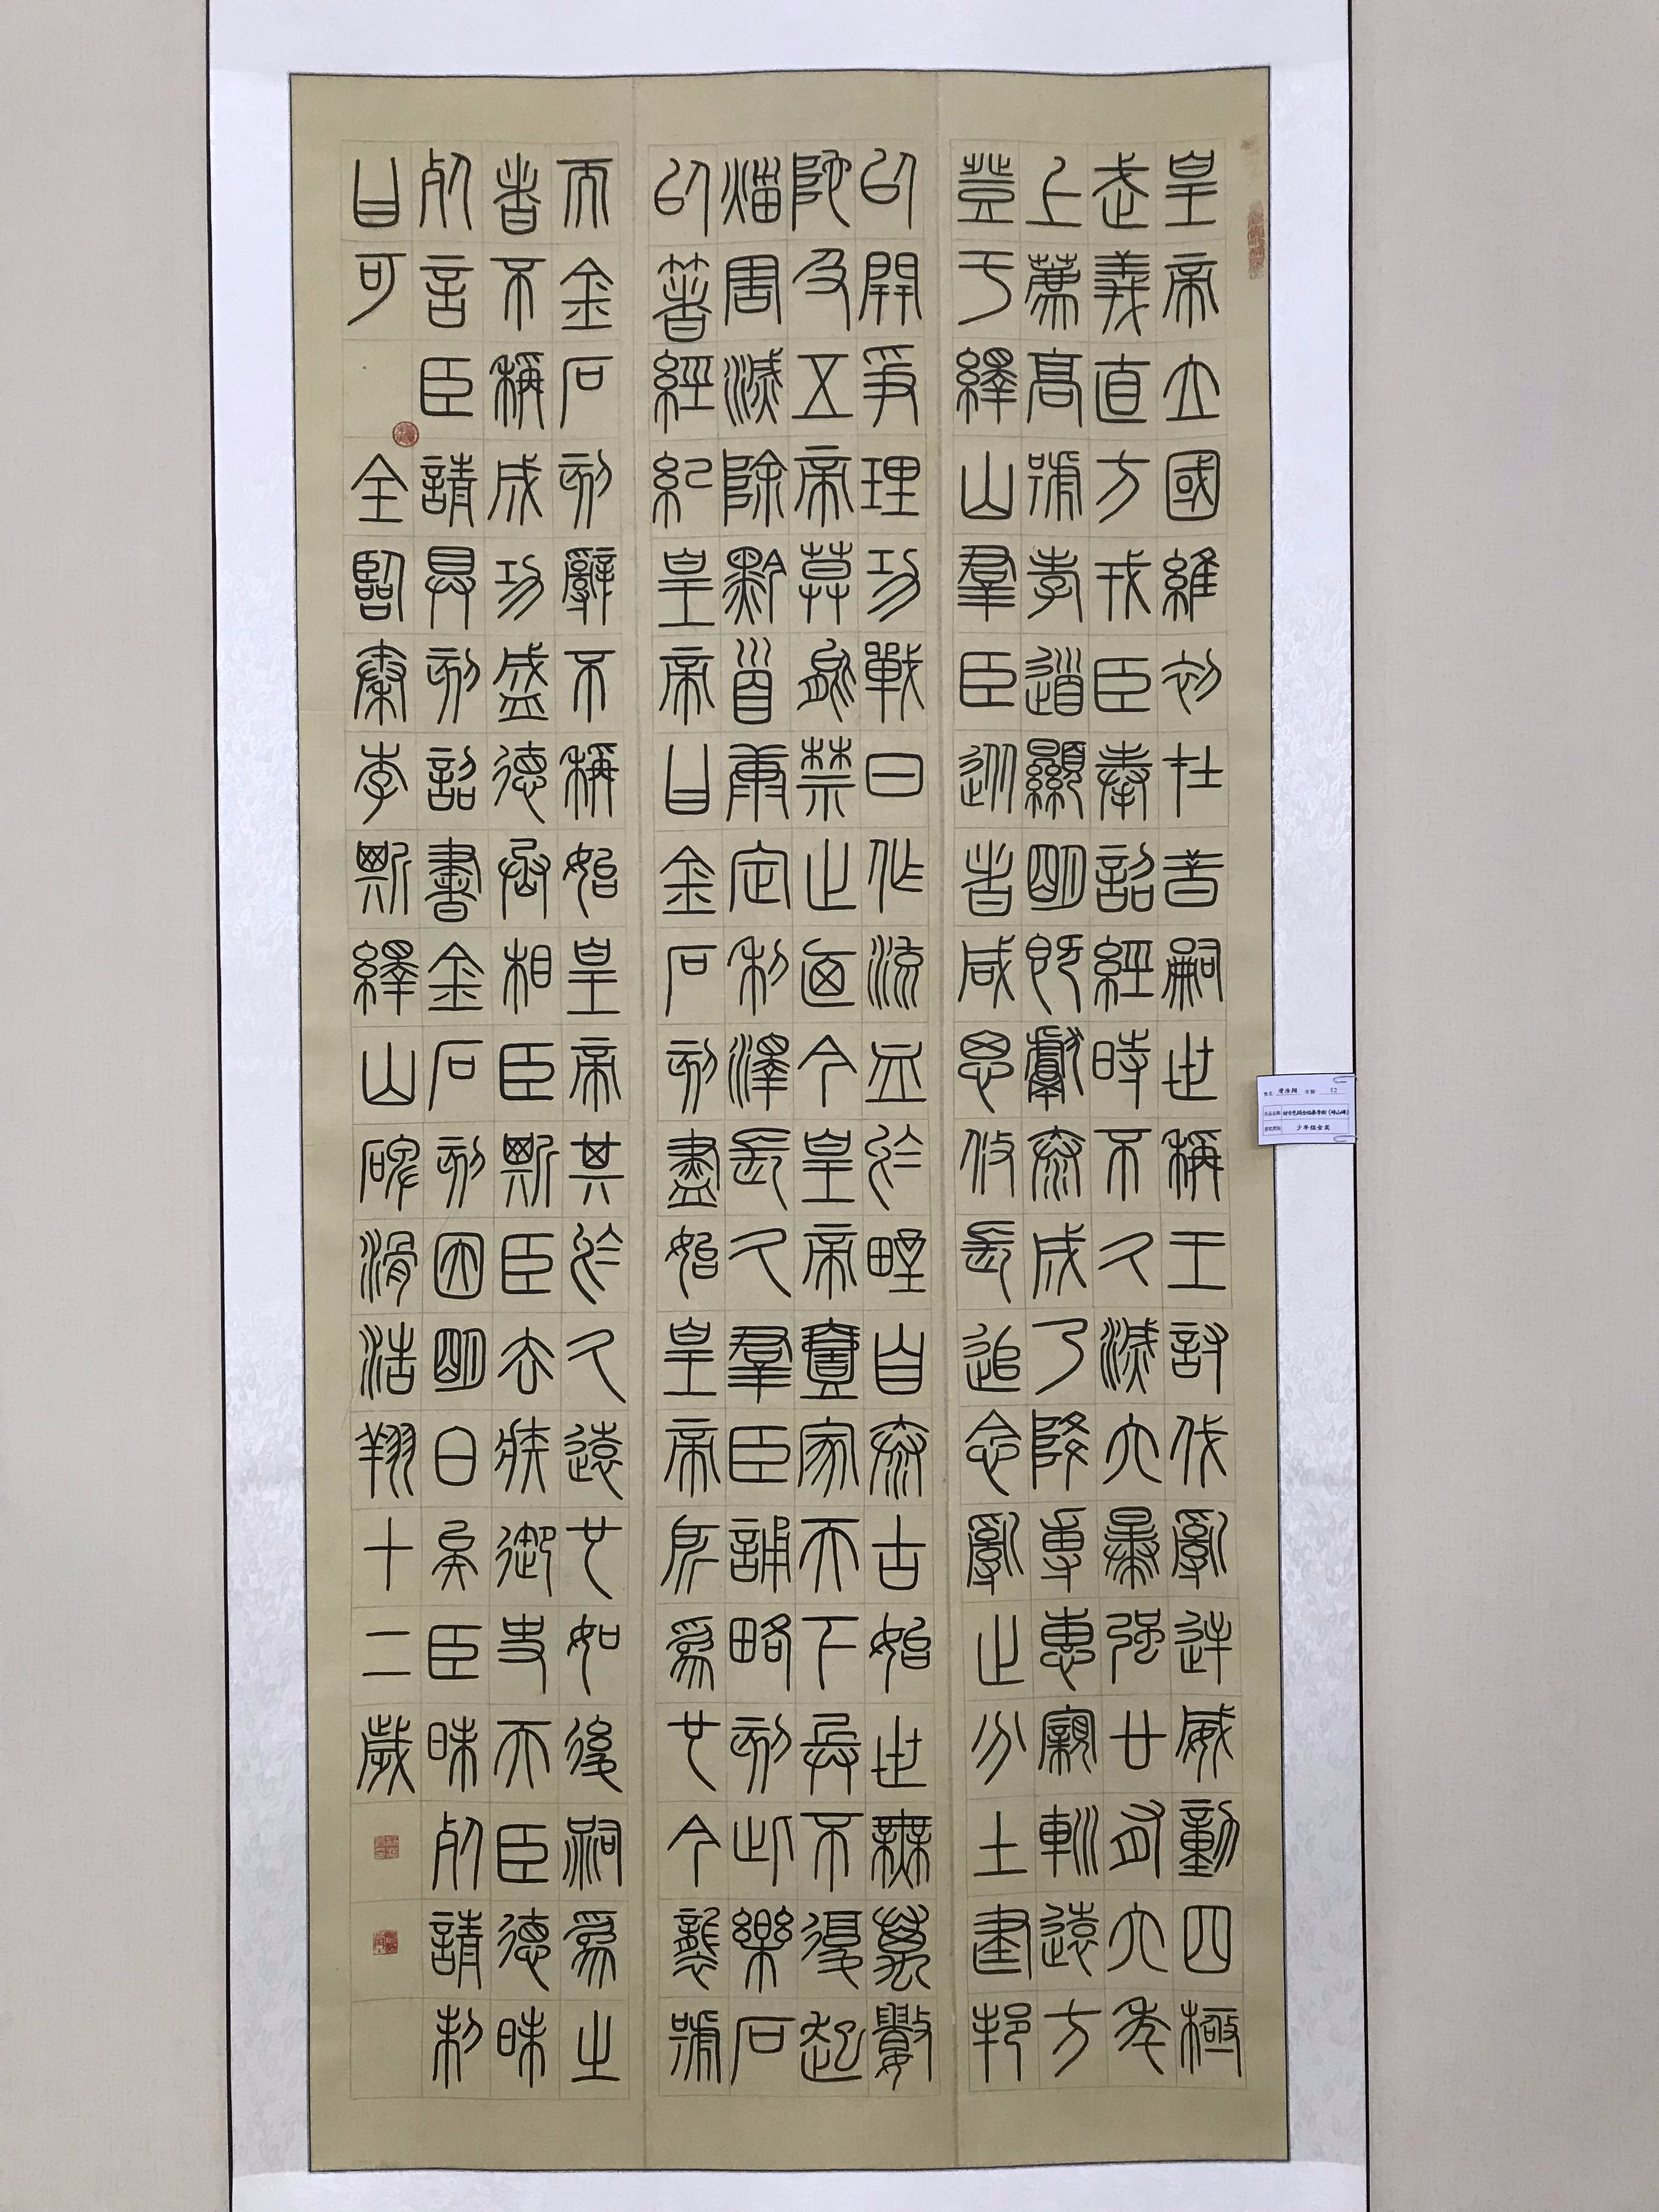 皇帝立國維初在昔嗣世稱王討伐亂逆威動四極
武義直方戎臣奉詔經時不久滅六暴強廿有六年
上薦高號孝道顯明既獻泰成乃降專惠親巡遠方
登于繹山羣臣從者咸思攸長追念亂世分土建邦
以開爭理功戰日作流血於野自泰古始世無萬數
阤及五帝莫能禁止廼今皇帝壹家天下兵不復起
烖害滅除黔首康定利澤長久羣臣誦略刻此樂石
以著經紀皇帝曰金石刻盡始皇帝所為也今襲號
而金石刻辭不稱始皇帝其於久遠也如後嗣為之
者不稱成功盛德丞相臣斯臣去疾御史夫臣德昧
死言臣請具刻詔書金石刻因明白矣臣昧死請制
曰可 全臨秦李斯繹山碑滑浩翔十二歲
姓名 滑浩翔 年龄 12
作品名称 仿古色绢全临秦李斯《峄山碑》
少年组金奖